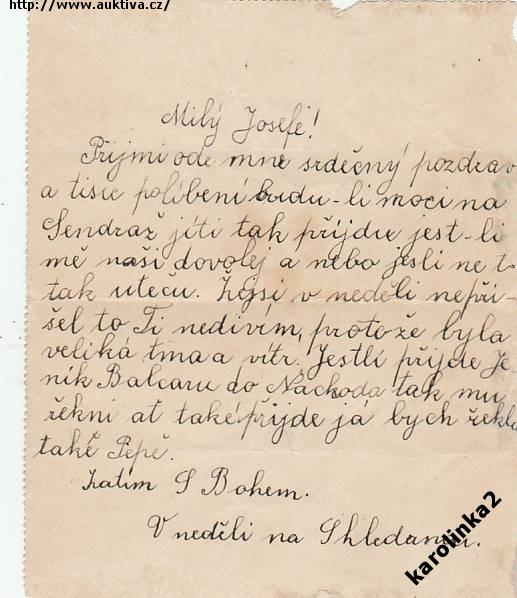 http://www.auktiva.cz/
Milý Josefe!
Přijmi ode mne srdečný pozdrav
a tisíc políbení budu-li moci na
Sendraž jíti tak příjdu jest-li
mě naši dovolej a nebo jesli ne t-
tak uteču. Žejsi v neděli nepři-
šel to Ti nedivím, protože byla
veliká tma a vítr. Jestlí přijde Je-
nik Balcaru do Náchoda tak mu
řekni ať také přijde já bych řekla
také Pepě.
Zatím S Bohem.
V neděli na Shledanou.
karolinka2